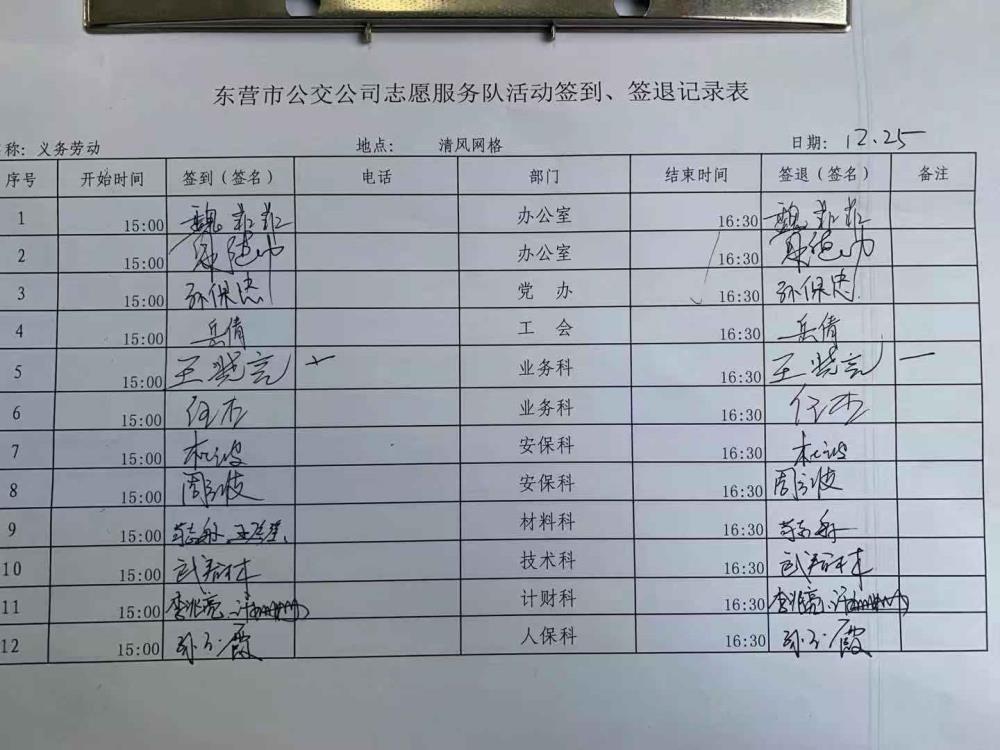 东营市公交公司志愿服务队活动签到、签退记录表
称: 义务劳动 地点: 清风网格 日期: 12.25
序号 开始时间 签到（签名） 电话 部门 结束时间 签退（签名） 备注
1 15:00 魏菲菲 办公室 16:30 魏菲菲
2 15:00 办公室 16:30
3 15:00 孙保忠 党 办 16:30 孙保忠
4 15:00 岳倩 工 会 16:30 岳倩
5 15:00 王晓言 业务科 16:30 王晓言
6 15:00 任杰 业务科 16:30 任杰
7 15:00 安保科 16:30
8 15:00 安保科 16:30
9 15:00 材料科 16:30
10 15:00 技术科 16:30
11 15:00 李兆亮 计财科 16:30 李兆亮
12 15:00 人保科 16:30